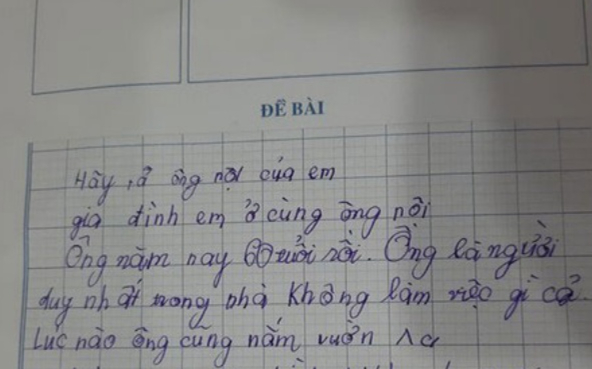 ĐỀ BÀI
Hãy tả ông nội của em
gia đình em ở cùng ông nội
Ông năm nay 60 tuổi rồi. Ông là người
duy nhất trong nhà không làm việc gì cả.
Lúc nào ông cũng nằm vườn